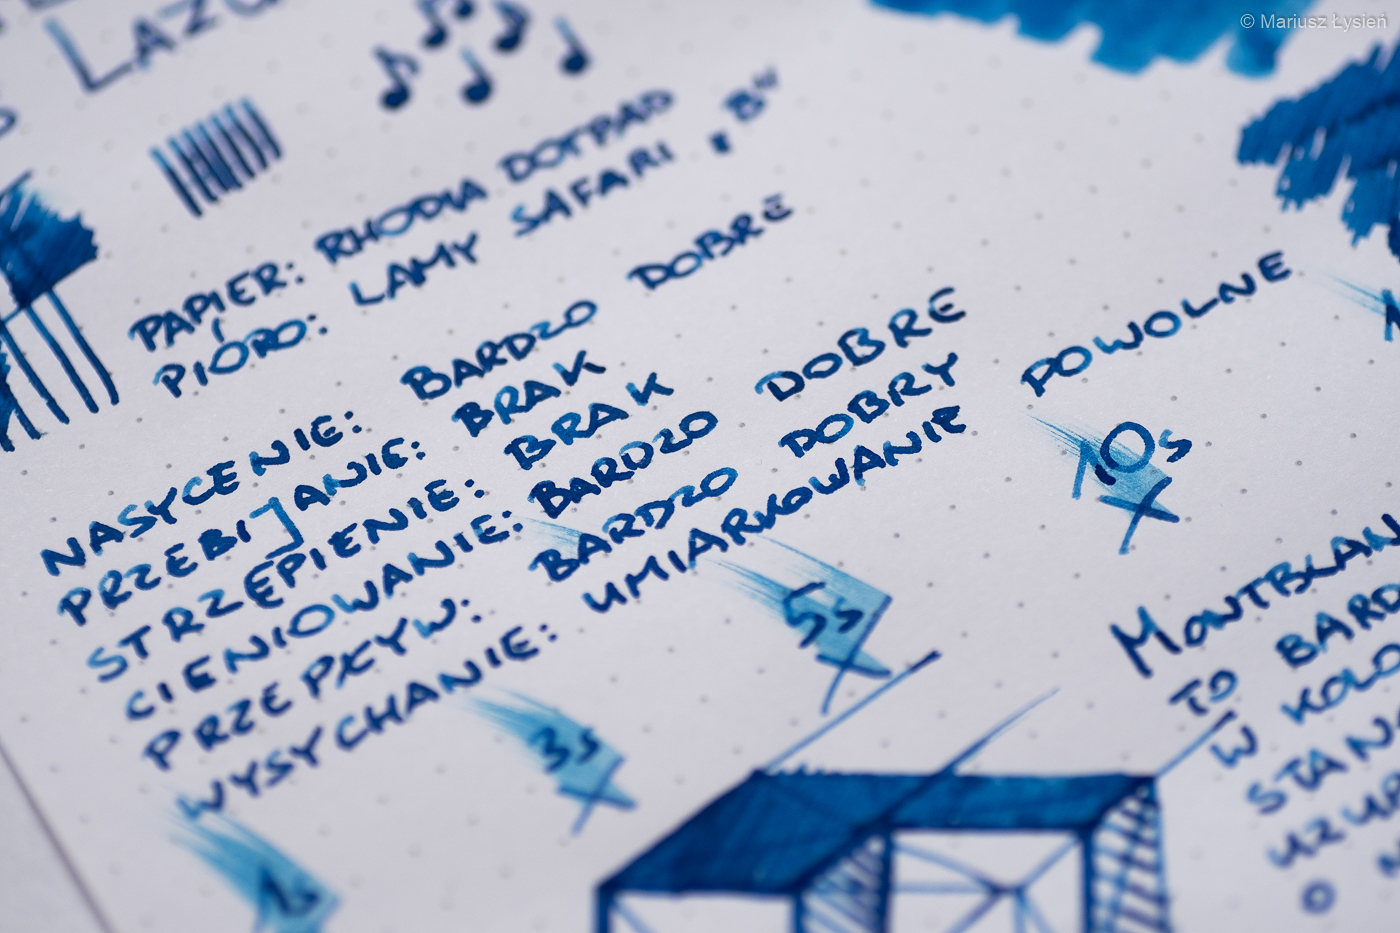 © Mariusz Łysień
PAPIER: RHODIA DOTPAD
PIÓRO: LAMY SAFARI „B"
NASYCENIE: BARDZO DOBRE
PRZEBIJANIE: BRAK
STRZĘPIENIE: BRAK
CIENIOWANIE: BARDZO DOBRE
PRZEPŁYW: BARDZO DOBRY
WYSYCHANIE: UMIARKOWANIE POWOLNE
1s 3s 5s 10s
TO
W
O